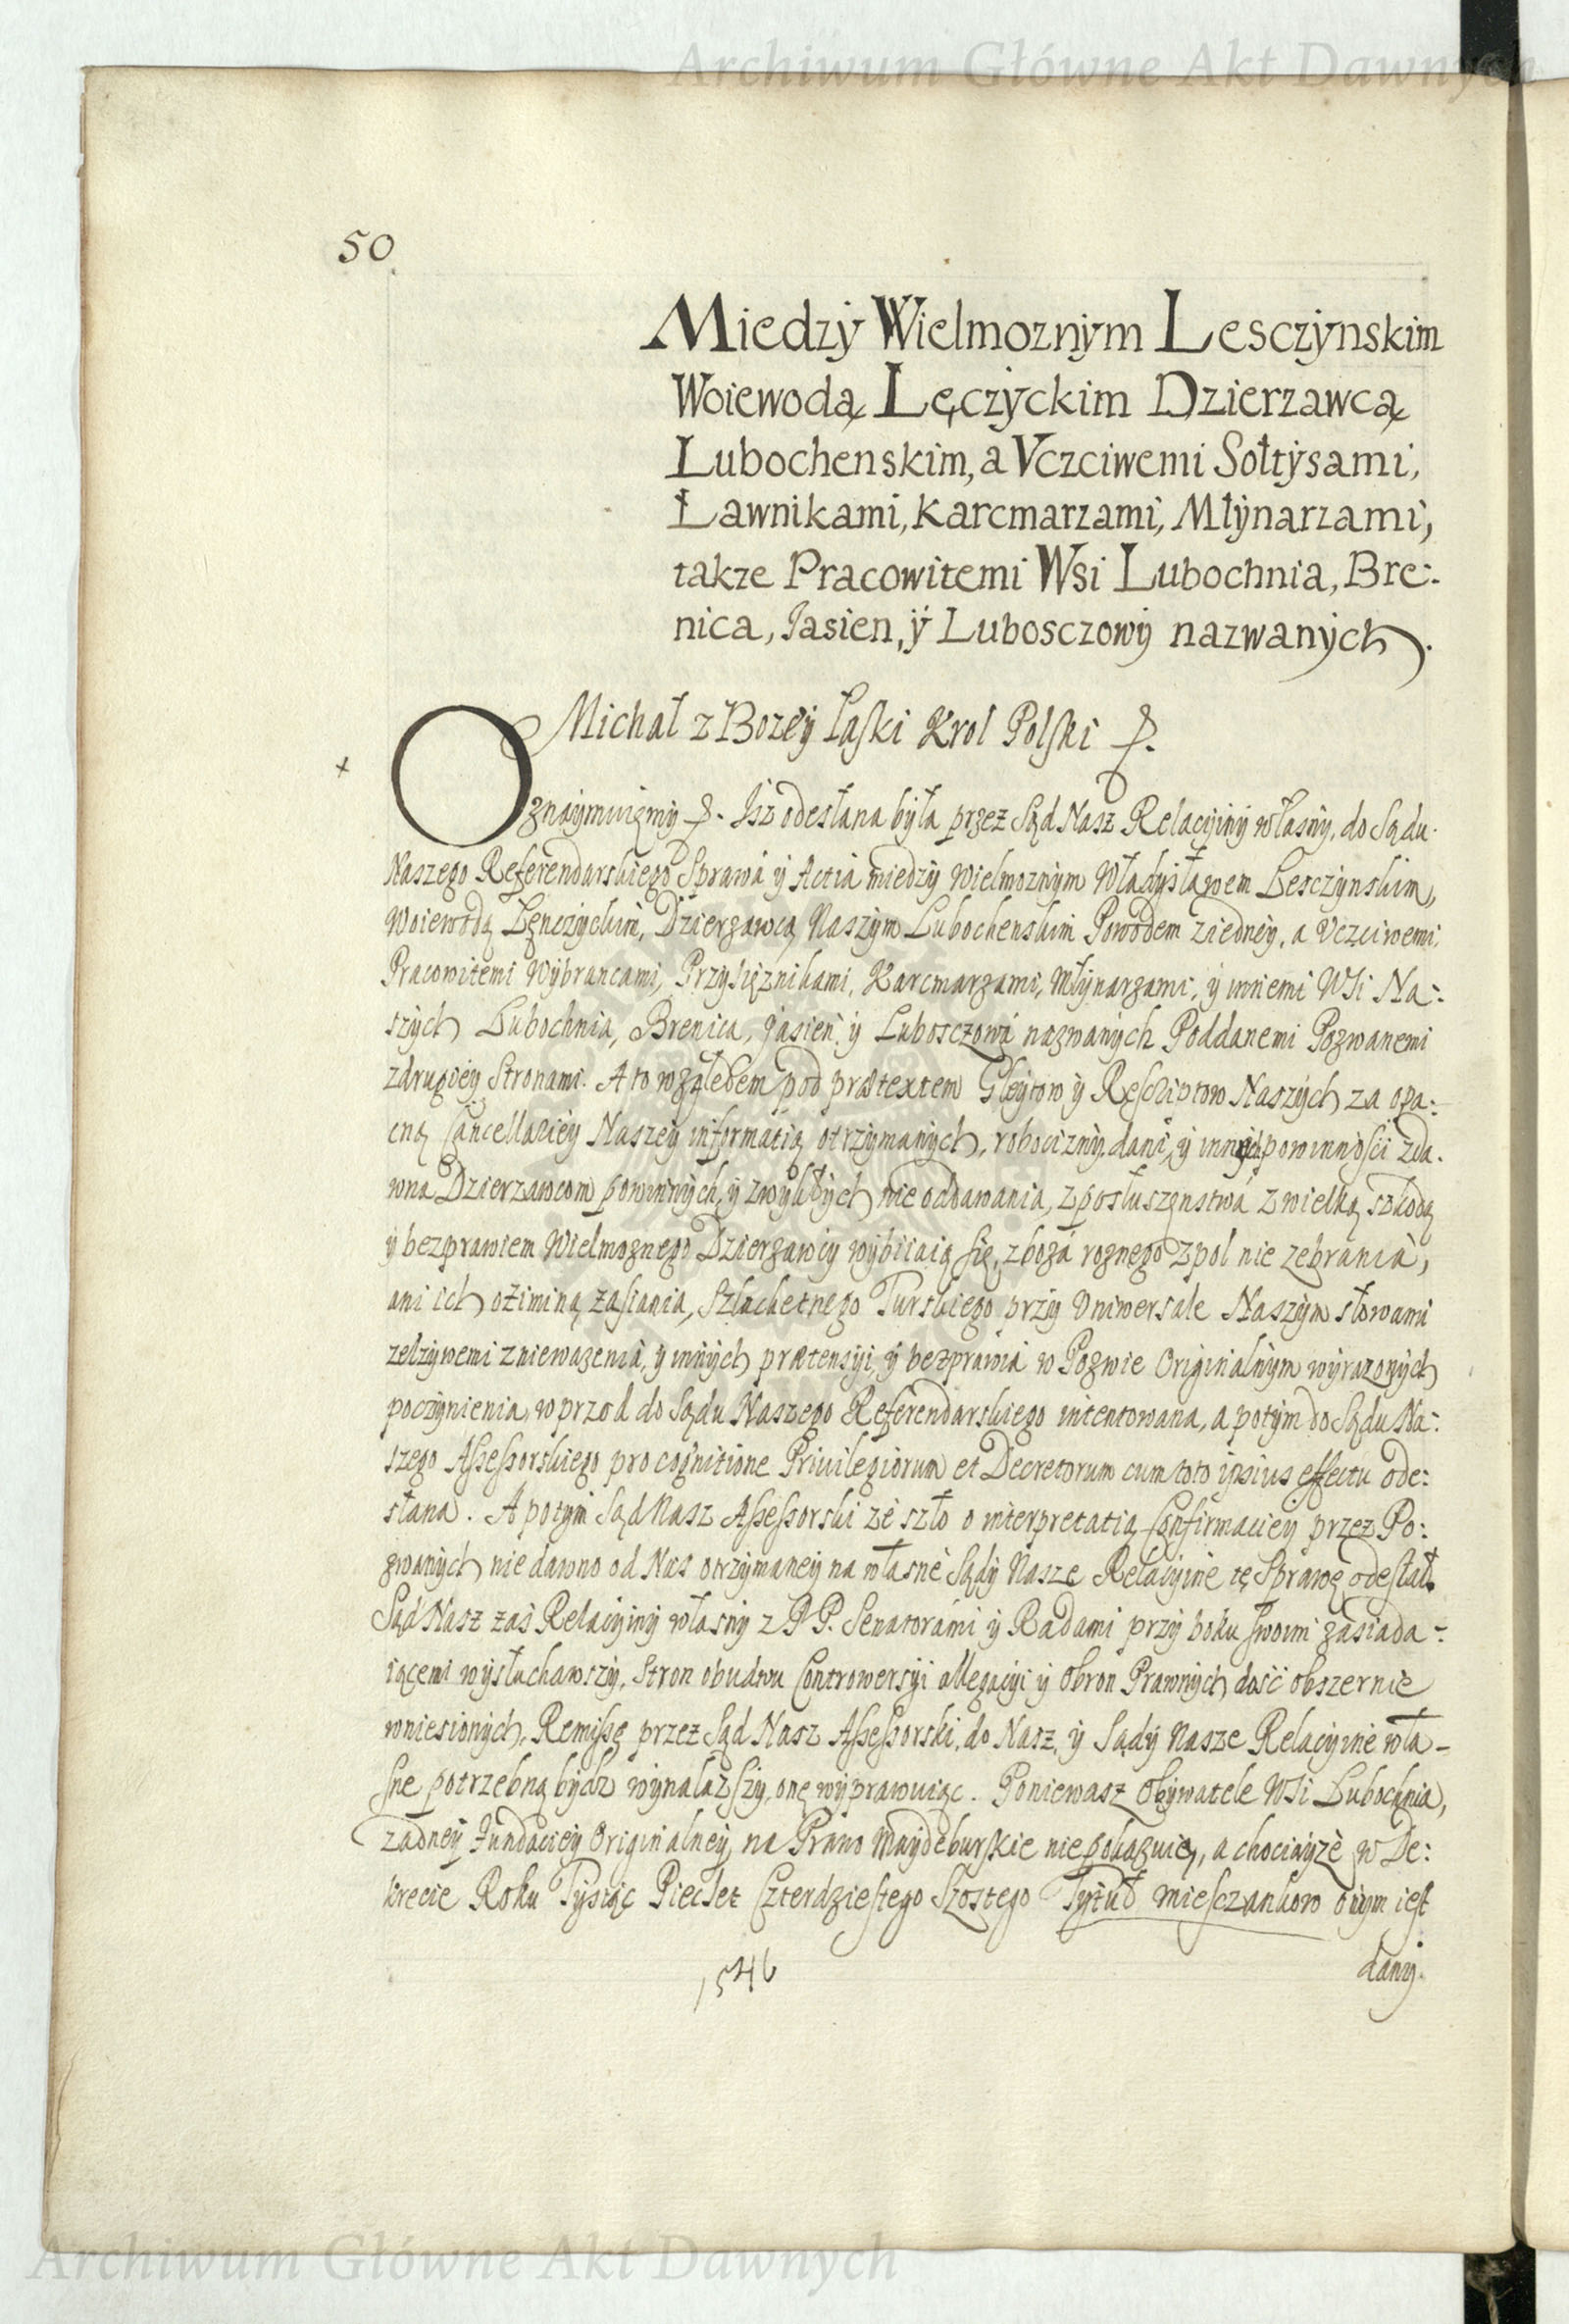 Archiwum Główne Akt Dawnych
50
Miedzÿ Wielmoznÿm Lesczÿnskim
Woiewodą Lęczÿckim Dzierzawcą
Lubochenskim, a Vczciwemi Sołtÿsami,
Ławnikami, Karcmarzami, Młÿnarzami,
takze Pracowitemi Wsi Lubochnia, Bre:
nica, Jasien, ÿ Lubosczowÿ nazwanÿch.
Michał z Bozeÿ Łaski Krol Polski
Oznaÿmuięmÿ Jsz odesłana bÿła przez Sąd Nasz Relacÿinÿ własnÿ, do Sądu
Naszego Referendarskiego Sprawa ÿ Actia miedzÿ Wielmoznÿm Władÿsławem Lesczÿnskim,
Woiewodą Lęnczÿckim, Dzierzawcą Naszÿm Lubochenskim Powodem ziedneÿ, a Vczciwemi,
Pracowitemi Wÿbrancami, Przÿsięznikami, Karcmarzami, Młÿnarzami, ÿ innemi WSi Na:
szÿch Lubochnia, Brenica, Jasien ÿ Lubosczowa nazwanÿch Poddanemi Pozwanemi
zdrugieÿ Stronami. A to względem pod prætextem Gleÿtow ÿ Rescriptow Naszÿch za opa:
czną Cancellarieÿ Naszeÿ informatią otrzÿmanÿch, robociznÿ, dani, ÿ innÿch powinnosci zda.
wna Dzierzawcom powinnÿch, ÿ zwÿkłÿch nie oddawania, zposłuszęnstwa z wielką szkodą
ÿ bezprawiem Wielmoznego Dzierzawcÿ wÿbiiaią się, zboza roznego zpol nie zebrania,
ani ich oziminą zasiania, Szlachetnego Turskiego przÿ Vniwersale Naszÿm słowami
zelzÿwemi zniewazenia, ÿ innÿch prætensÿi, ÿ bezprawia w Pozwie Originalnÿm wÿrazonÿch
poczÿnienia, wprzod do Sądu Naszego Referendarskiego intentowana, a potÿm do Sądu Na:
szego Assessorskiego pro cognitione Priuilegiorum et Decretorum cum toto ipsius effectu ode:
słana. A potÿm Sąd Nasz Assessorski ze szło o interpretatią Confirmacieÿ przez Po:
zwanÿch nie dawno od Nas otrzÿmaneÿ na własne Sądÿ Nasze Relacÿine tę Sprawę odesłał.
Sąd Nasz zas Relacÿinÿ własnÿ z P P. Senatorami ÿ Radami przÿ boku swoim zasiada:
iącemi wÿsłuchawszÿ, Stron obudwu Controwersÿi allegacÿi ÿ Obron Prawnÿch dość obszernie
wniesionÿch, Remissę przez Sąd Nasz Assessorski, do Nasz, ÿ Sądÿ Nasze Relacÿine wła-
sne potrzebną bÿdz wÿnalazszÿ, onę wÿprawuiąc. Poniewasz Obÿwatele WSi Lubochnia,
zadneÿ Fundacieÿ Originalneÿ, na Prawo Maÿdeburskie nie pokazuię, a chociaÿze w De:
krecie Roku Tÿsiąc Piecset Czterdziestego Szostego Tÿtuł miesczankow onÿm iest
danÿ.
1546
Archiwum Główne Akt Dawnych